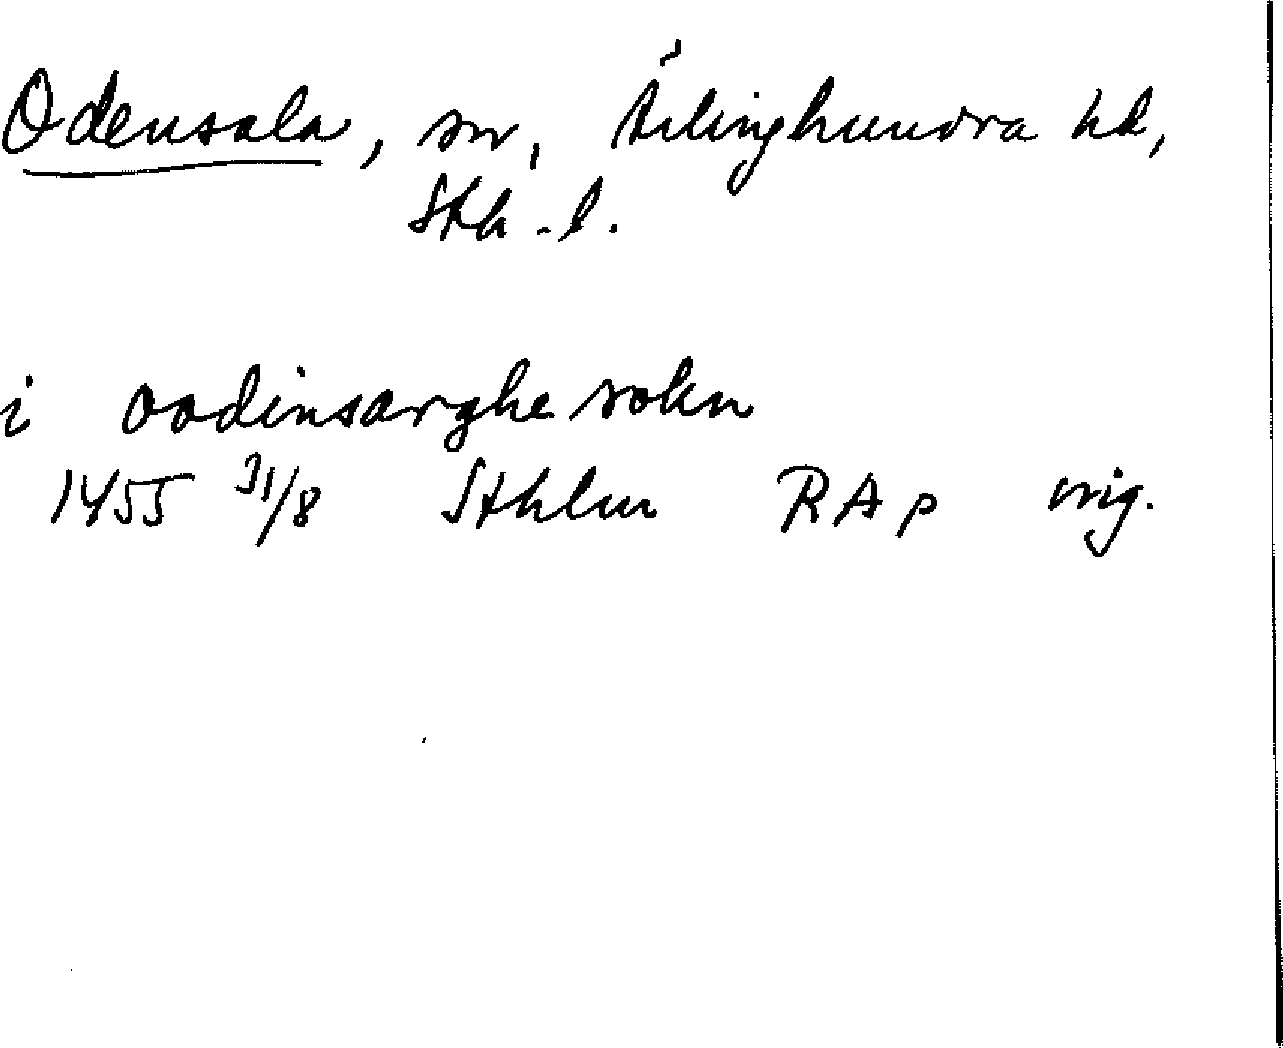 Odensala, sn, Ärlinghundra hd,
Sth-l.
i oodinsarghe sokn
1455 31/8 Sthlm RAp orig.